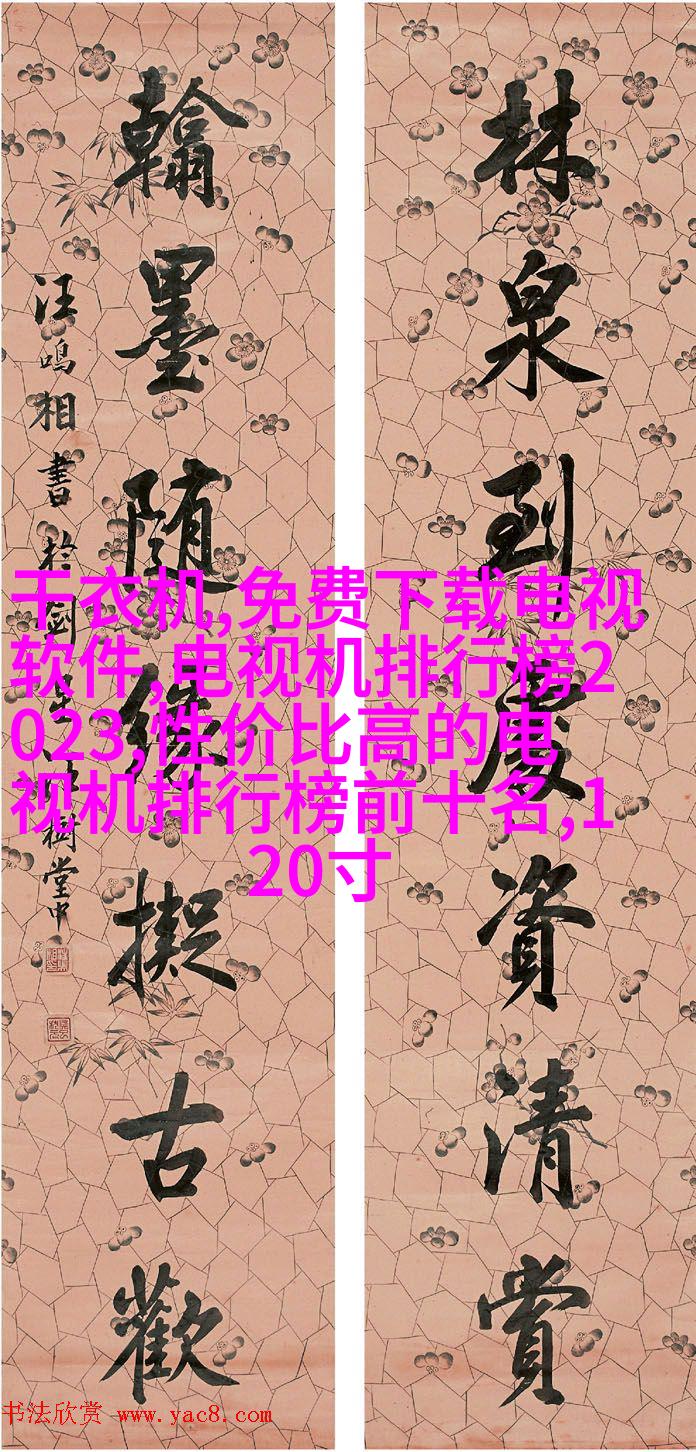 林泉到處資清賞
翰墨隨緣擬古歡
汪鳴相書於劍樹堂中
干衣机,免费下载电视
软件,电视机排行榜2
023,性价比高的电
视机排行榜前十名,1
20寸
书法欣赏 www.yac8.com